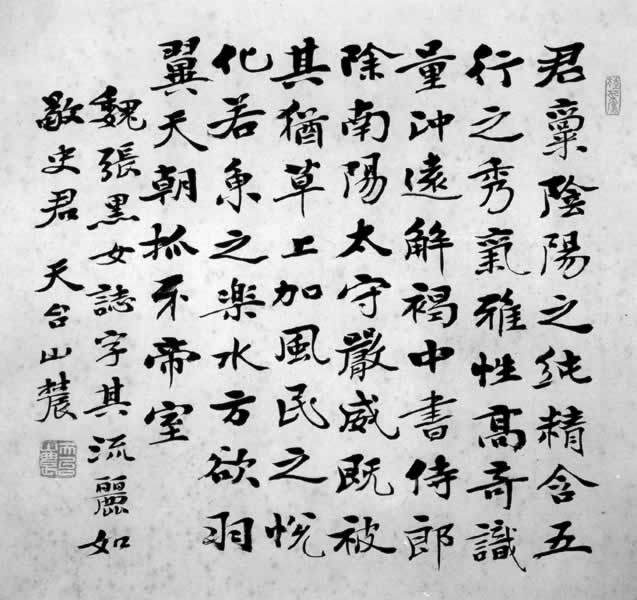 君稟陰陽之純精含五
行之秀氣雅性高奇識
量沖遠解褐中書侍郎
除南陽太守嚴威既被
其猶草上加風民之悅
化若魚之楽水方欲羽
翼天朝抓牙帝室
魏張黑女誌字其流麗如
敬史君 天台山農